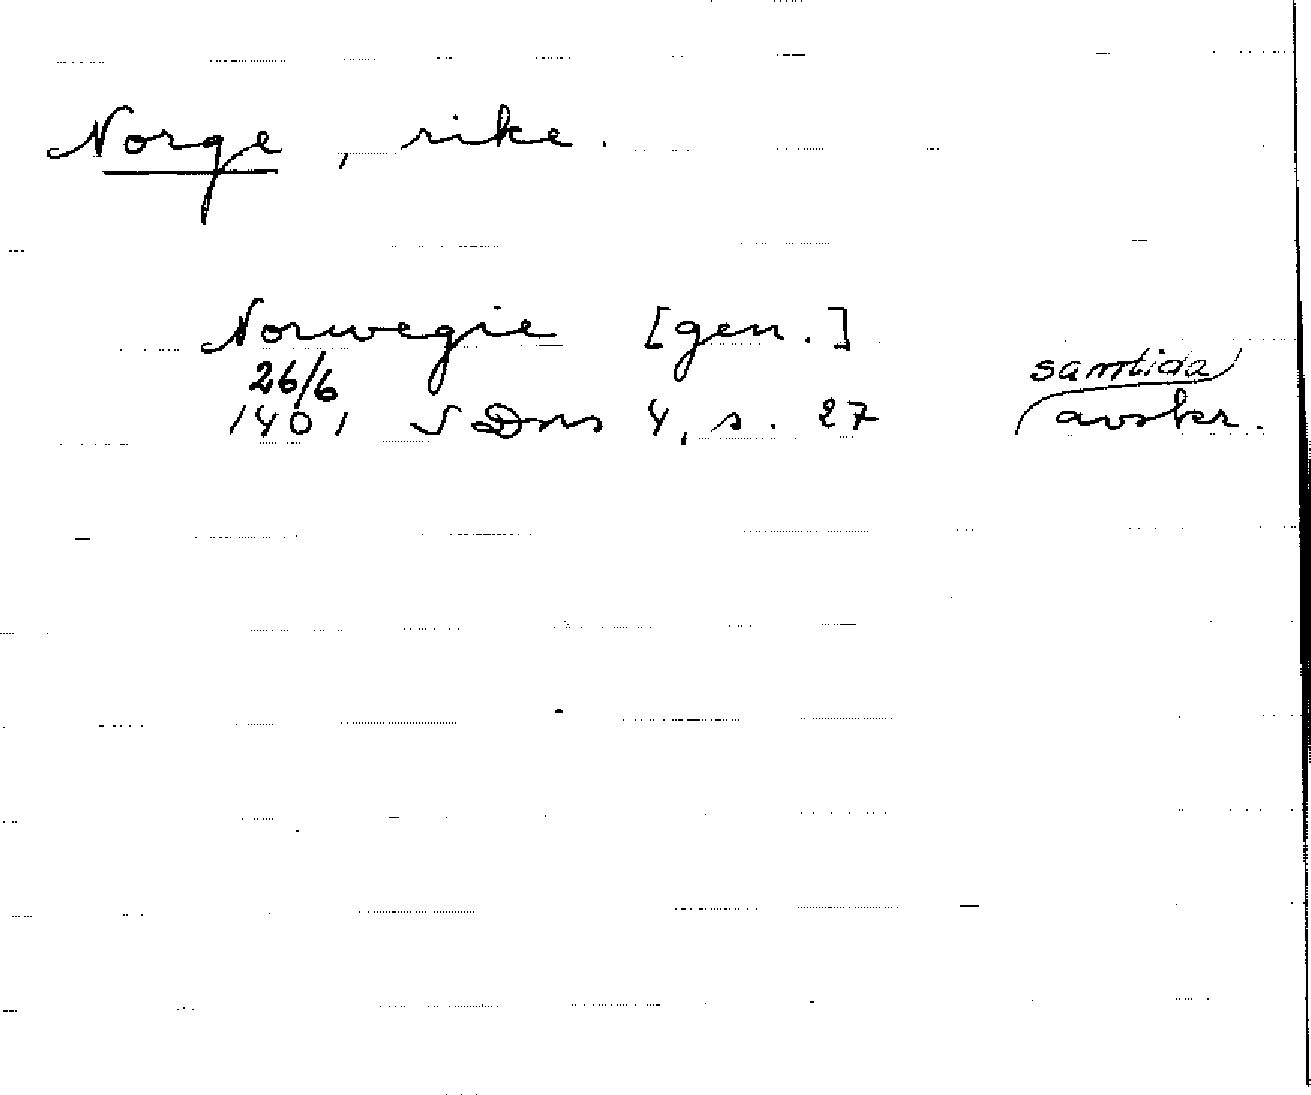 Norge, rike.
Norwegie [gen.]
26/6 samtida
1401 SDns 4, s. 27 avskr.